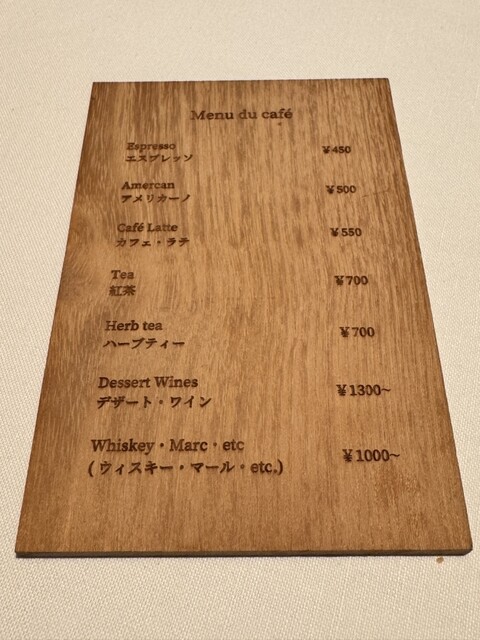 Menu du café
Espresso ¥450
エスプレッソ
Amercan ¥500
アメリカーノ
Café Latte ¥550
カフェ・ラテ
Tea ¥700
紅茶
Herb tea ¥700
ハーブティー
Dessert Wines ¥1300~
デザート・ワイン
Whiskey・Marc・etc ¥1000~
(ウィスキー・マール・etc.)